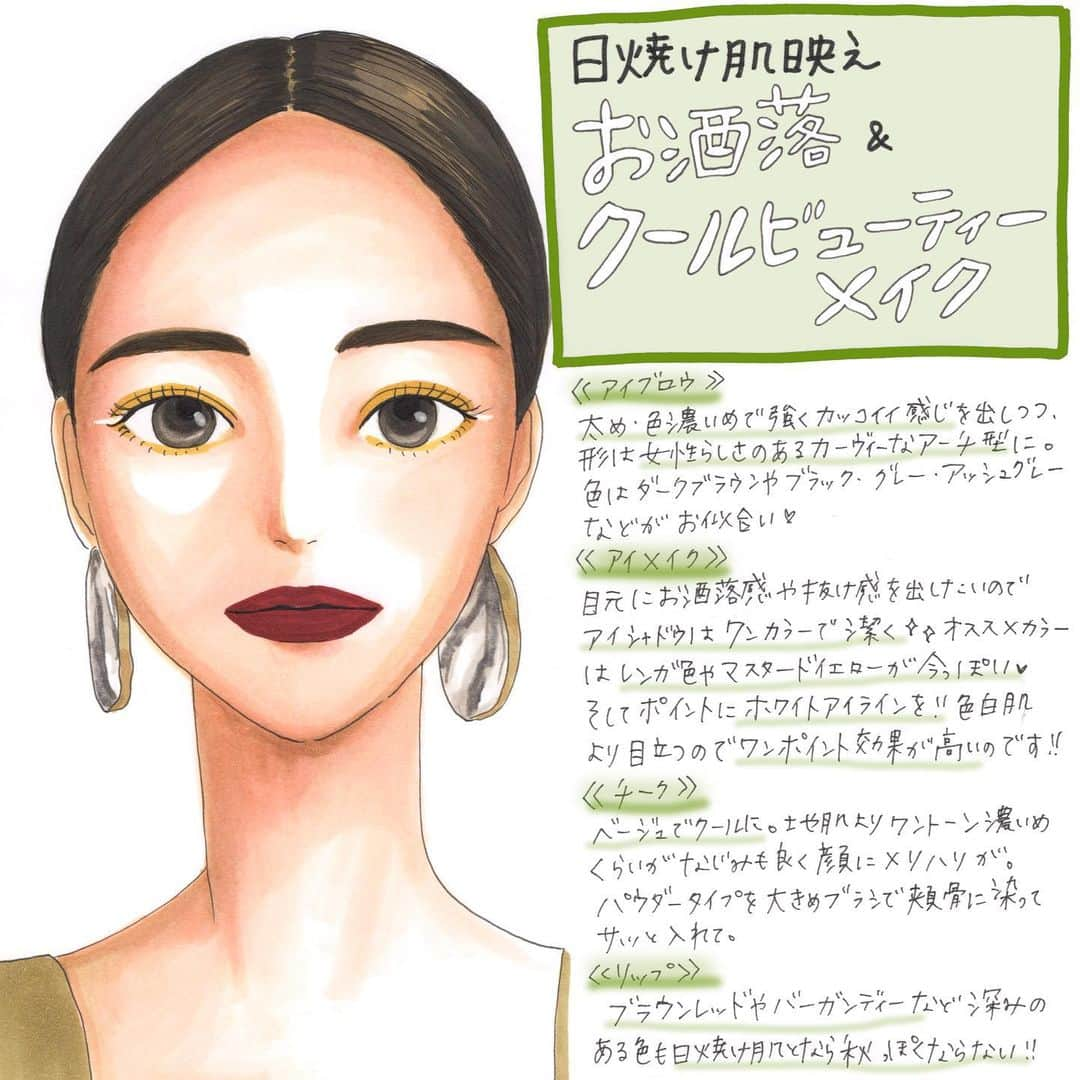 日焼け肌映え
お洒落 &
クールビューティー
メイク
《アイブロウ》
太め・色濃いめで強くカッコイイ感じを出しつつ、
形は女性らしさのあるカーヴィーなアーチ型に。
色はダークブラウンやブラック・グレー・アッシュグレー
などがお似合い♥
《アイメイク》
目元にお洒落感や抜け感を出したいので
アイシャドウはワンカラーで潔く✧✧オススメカラー
はレンガ色やマスタードイエローが今っぽい♥
そしてポイントにホワイトアイラインを!!色白肌
より目立つのでワンポイント効果が高いのです!!
《チーク》
ベージュでクールに。地肌よりワントーン濃いめ
くらいがなじみも良く顔にメリハリが。
パウダータイプを大きめブラシで頬骨に染って
サッと入れて。
《リップ》
ブラウンレッドやバーガンディーなど深みの
ある色も日焼け肌となら秋っぽくならない!!